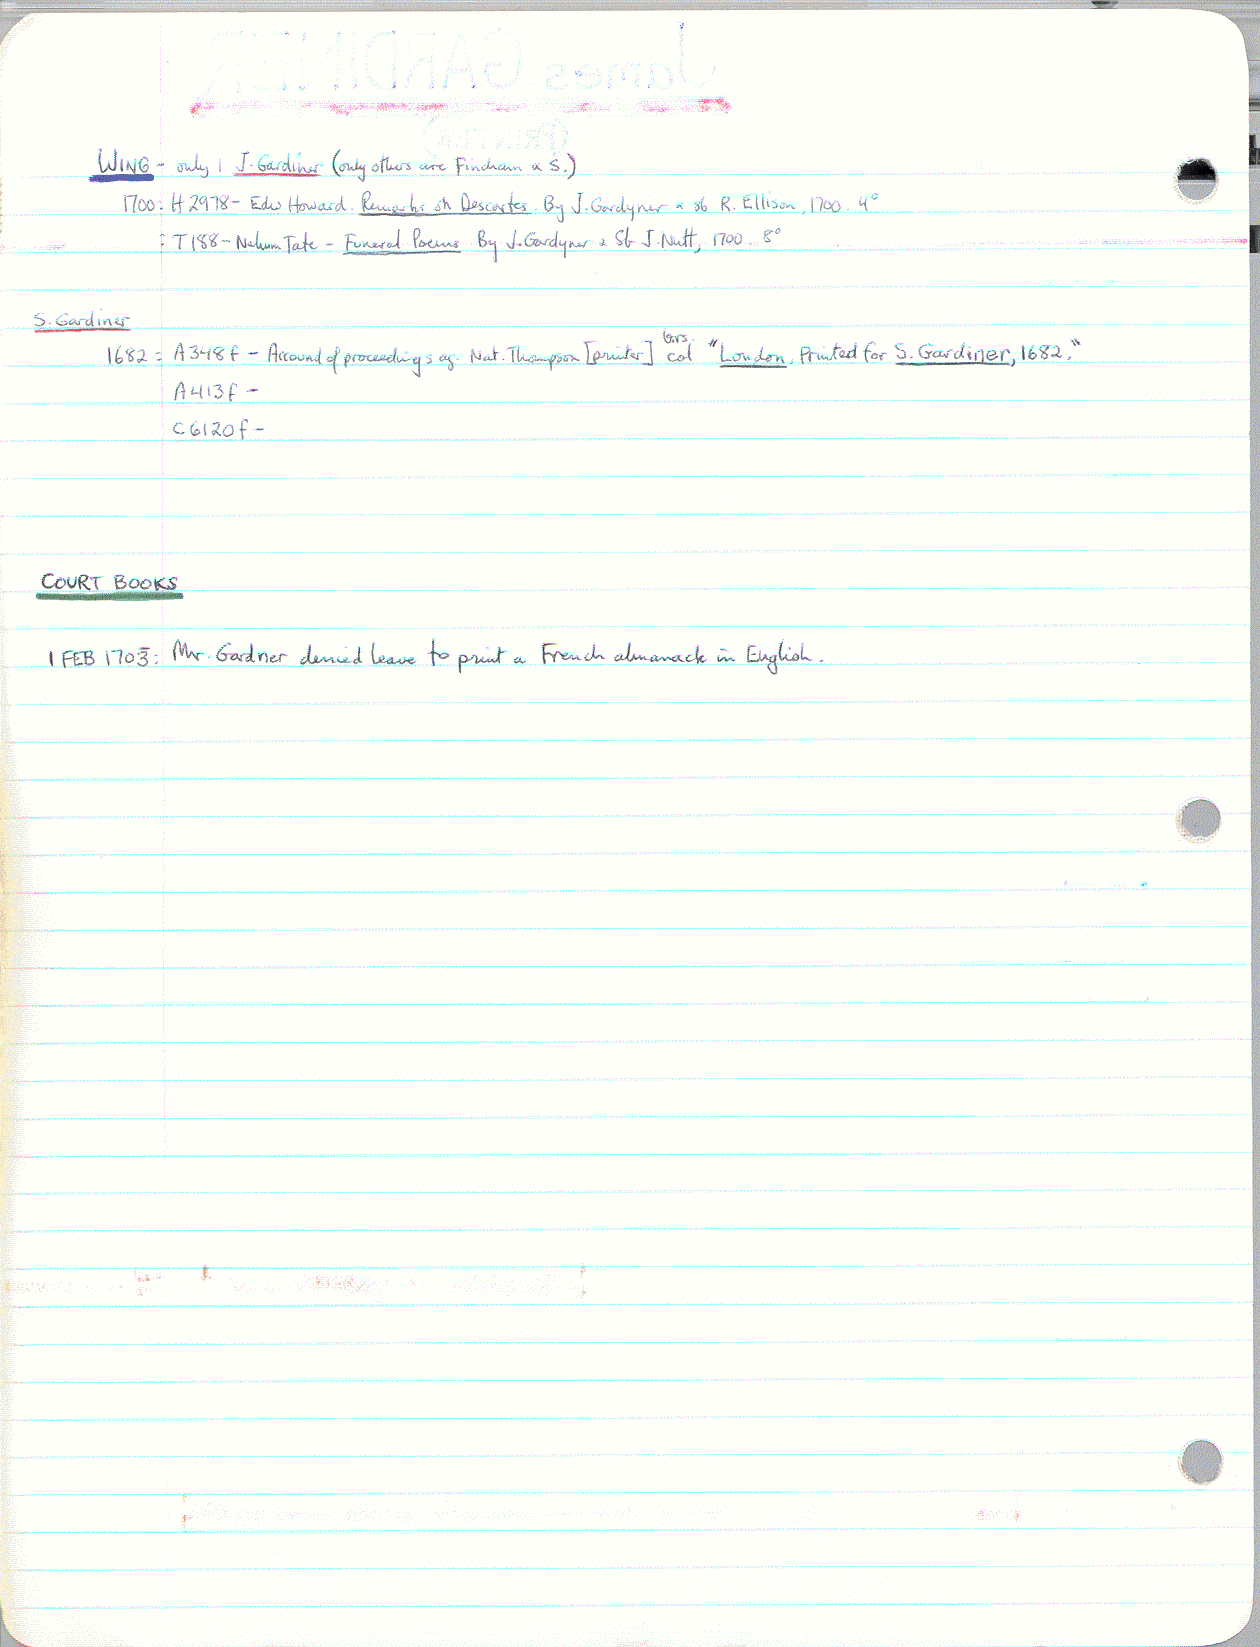 WING - only 1 J. Gardiner (only others are Fincham & S.)
1700: H 2978 - Edw Howard. Remarks on Descartes. By J. Gardyner & sb R. Ellison, 1700. 4°
: T188 - Nahum Tate - Funeral Poems By J. Gardyner & Sb J. Nutt, 1700. 8°
S. Gardiner
1682: A348f - Account of proceedings ag. Nat. Thompson [printer] col "London, Printed for S. Gardiner, 1682."
A413f -
C6120f -
COURT BOOKS
1 FEB 1703: Mr. Gardner denied leave to print a French almanack in English.